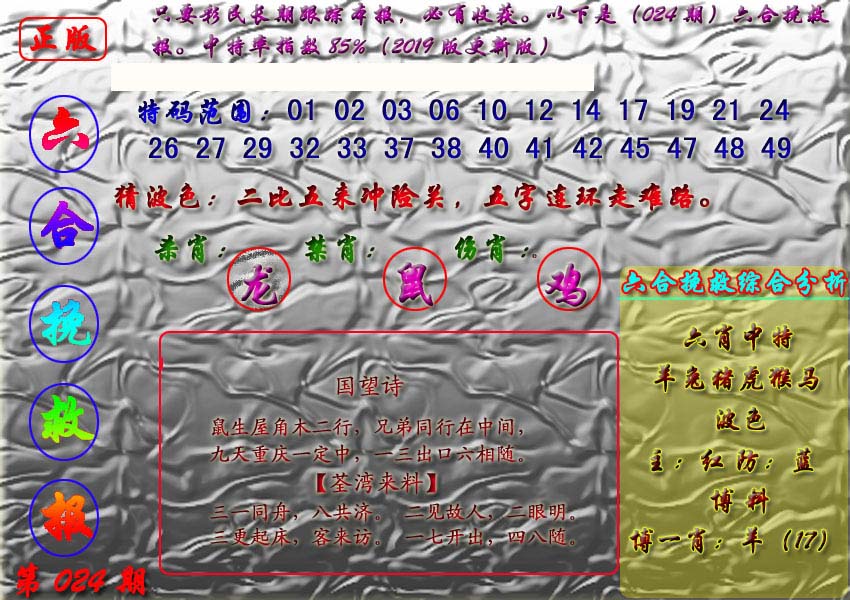 正版
只要彩民长期跟踪本报，必有收获。以下是（024期）六合挽救
报。中特率指数85%（2019版更新版）
六合挽救报
第024期
特码范围：01 02 03 06 10 12 14 17 19 21 24
26 27 29 32 33 37 38 40 41 42 45 47 48 49
猜波色：二比五来冲险关，五字连环走难路。
杀肖：龙 禁肖：鼠 伤肖：鸡。
国望诗
鼠生屋角木二行，兄弟同行在中间，
九天重庆一定中，一三出口六相随。
【荃湾来料】
三一同舟，八共济。 二见故人，二眼明。
三更起床，客来访。 一七开出，四八随。
六合挽救综合分析
六肖中特
羊兔猪虎猴马
波色
主：红防：蓝
博料
博一肖：羊（17）